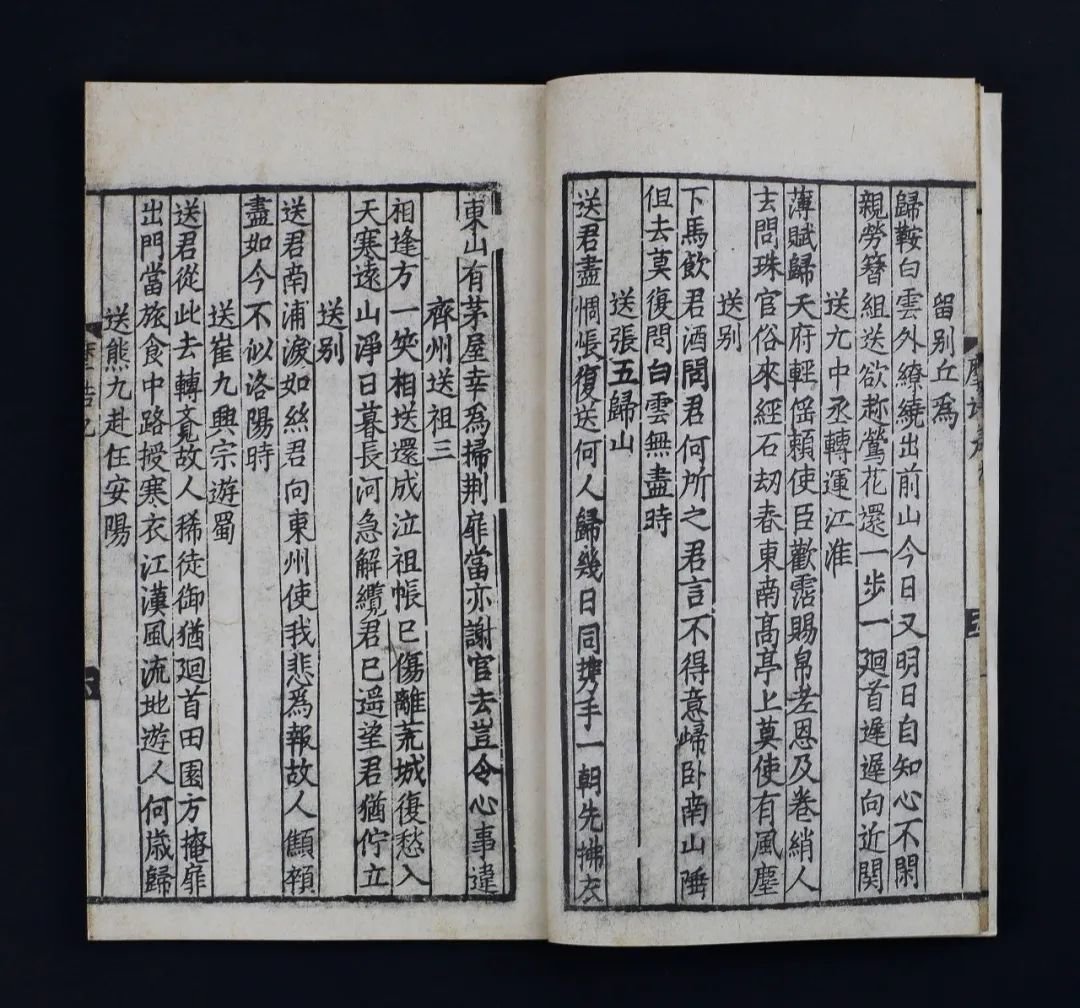 留别丘爲
歸鞍白雲外繚繞出前山今日又明日自知心不閑
親勞簪組送欲趂鶯花還一步一廻首遲遲向近關
送亢中丞轉運江淮
薄賦歸天府輕徭賴使臣歡霑賜帛老恩及卷綃人
去問珠官俗來經石刧春東南高亭上莫使有風塵
送别
下馬飲君酒問君何所之君言不得意歸卧南山陲
但去莫復問白雲無盡時
送張五歸山
送君盡惆悵復送何人歸幾日同攜手一朝先拂衣
東山有茅屋幸爲掃荆扉當亦謝官去豈令心事違
齊州送祖三
相逢方一笑相送還成泣祖帳已傷離荒城復愁入
天寒遠山淨日暮長河急解纜君已遥望君猶佇立
送别
送君南浦淚如絲君向東州使我悲爲報故人顦顇
盡如今不似洛陽時
送崔九興宗遊蜀
送君從此去轉覺故人稀徒御猶廻首田園方掩扉
出門當旅食中路授寒衣江漢風流地遊人何歲歸
送熊九赴任安陽